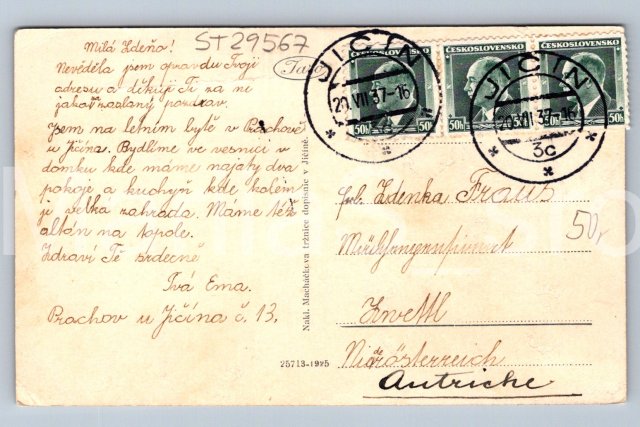 ST29567
Milá Zdeňo!
Nevěděla jsem opravdu Tvoji
adresu a děkuji Ti za ne
zaslaný pozdrav.
Jsem na letním bytě v Prachově
u Jičína. Bydlíme ve vesnici v
domku kde máme najaty dva
pokoje a kuchyň kde kolem
je velká zahrada. Máme též
altán na topole.
Zdraví Tě srdečně
Tvá Ema.
Prachov u Jičína č. 13.
Nakl. Macháčkova tržnice dopisnic v Jičíně.
25713-1925
JIČÍN
20.VII.37-16
ČESKOSLOVENSKO
50h
ČESKOSLOVENSKO
50h
ČESKOSLOVENSKO
50h
JIČÍN
20.VII.37-16
3c
Zdenka Fraus
Zwettl
Niederösterreich
Autriche
50,